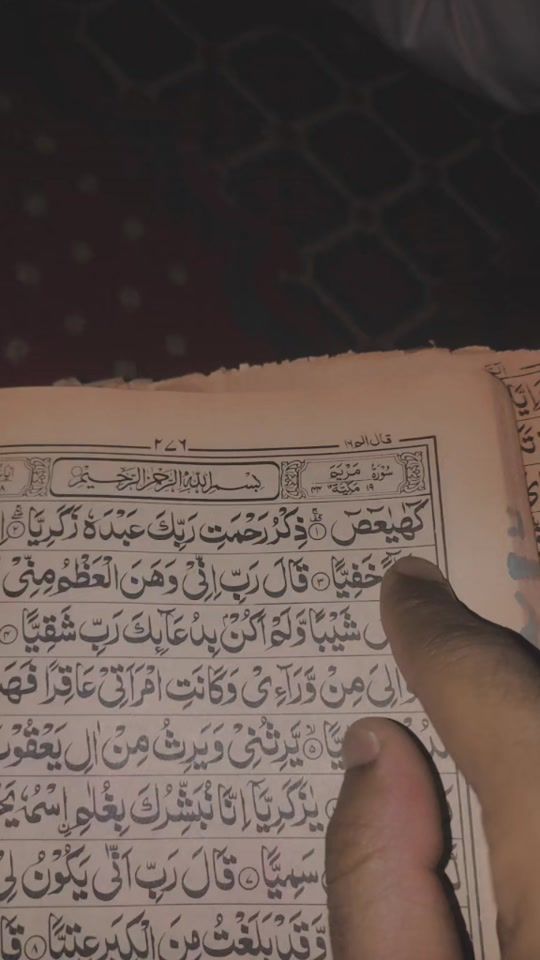 ٢٤٦ قال الم ١٦
سُوْرَةُ مَرْيَمَ ١٩ مَكِّيَّةٌ ٤٤ بِسْمِ اللّٰهِ الرَّحْمٰنِ الرَّحِيْمِ
كٓهٰيٰعٓصٓ ١ ذِكْرُ رَحْمَتِ رَبِّكَ عَبْدَهٗ زَكَرِيَّا ٢
خَفِيًّا ٣ قَالَ رَبِّ اِنِّيْ وَهَنَ الْعَظْمُ مِنِّيْ
شَيْبًا وَّلَمْ اَكُنْۢ بِدُعَآئِكَ رَبِّ شَقِيًّا ٤
مِنْ وَّرَآءِيْ وَكَانَتِ امْرَاَتِيْ عَاقِرًا
يَّرِثُنِيْ وَيَرِثُ مِنْ اٰلِ يَعْقُوْبَ
يٰزَكَرِيَّآ اِنَّا نُبَشِّرُكَ بِغُلٰمِ اِۨسْمُهٗ
سَمِيًّا ٧ قَالَ رَبِّ اَنّٰى يَكُوْنُ لِيْ
وَّقَدْ بَلَغْتُ مِنَ الْكِبَرِ عِتِيًّا ٨